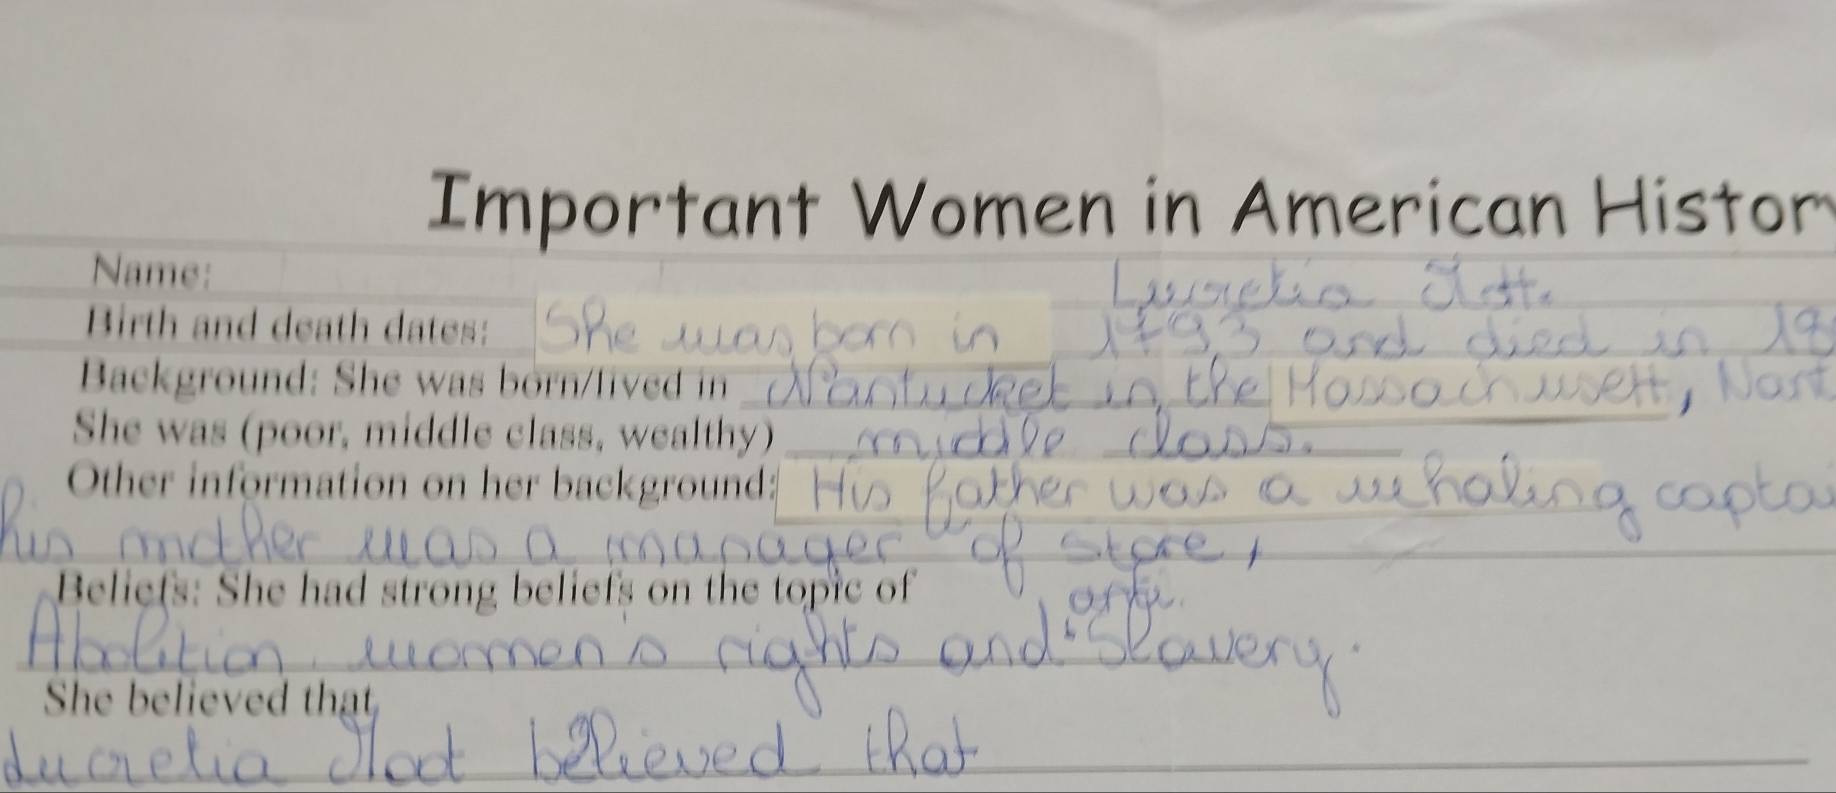 Important Women in American Histor
Name: Lucretia Mott.
Birth and death dates: She was born in 1793 and died in 18
Background: She was born/lived in Nantucket in the Massachusett, Nant
She was (poor, middle class, wealthy) middle class.
Other information on her background: His father was a whaling captai
his mother was a manager of store,
Beliefs: She had strong beliefs on the topic of anti.
Abolition women's rights and slavery.
She believed that
Lucretia Mott believed that